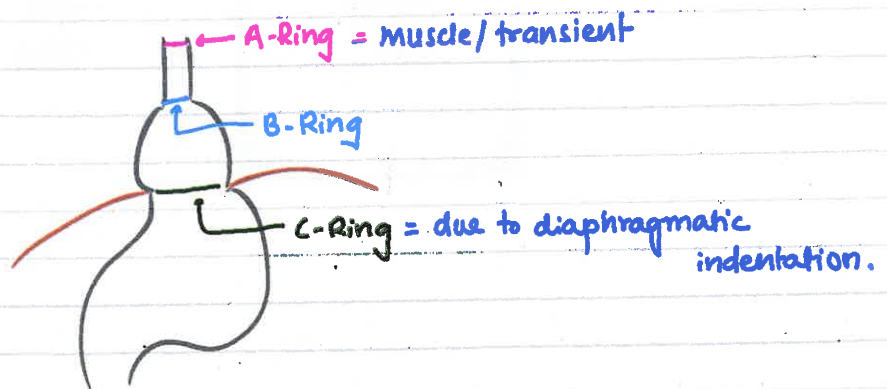 A-Ring = muscle/transient
B-Ring
C-Ring = due to diaphragmatic
indentation.